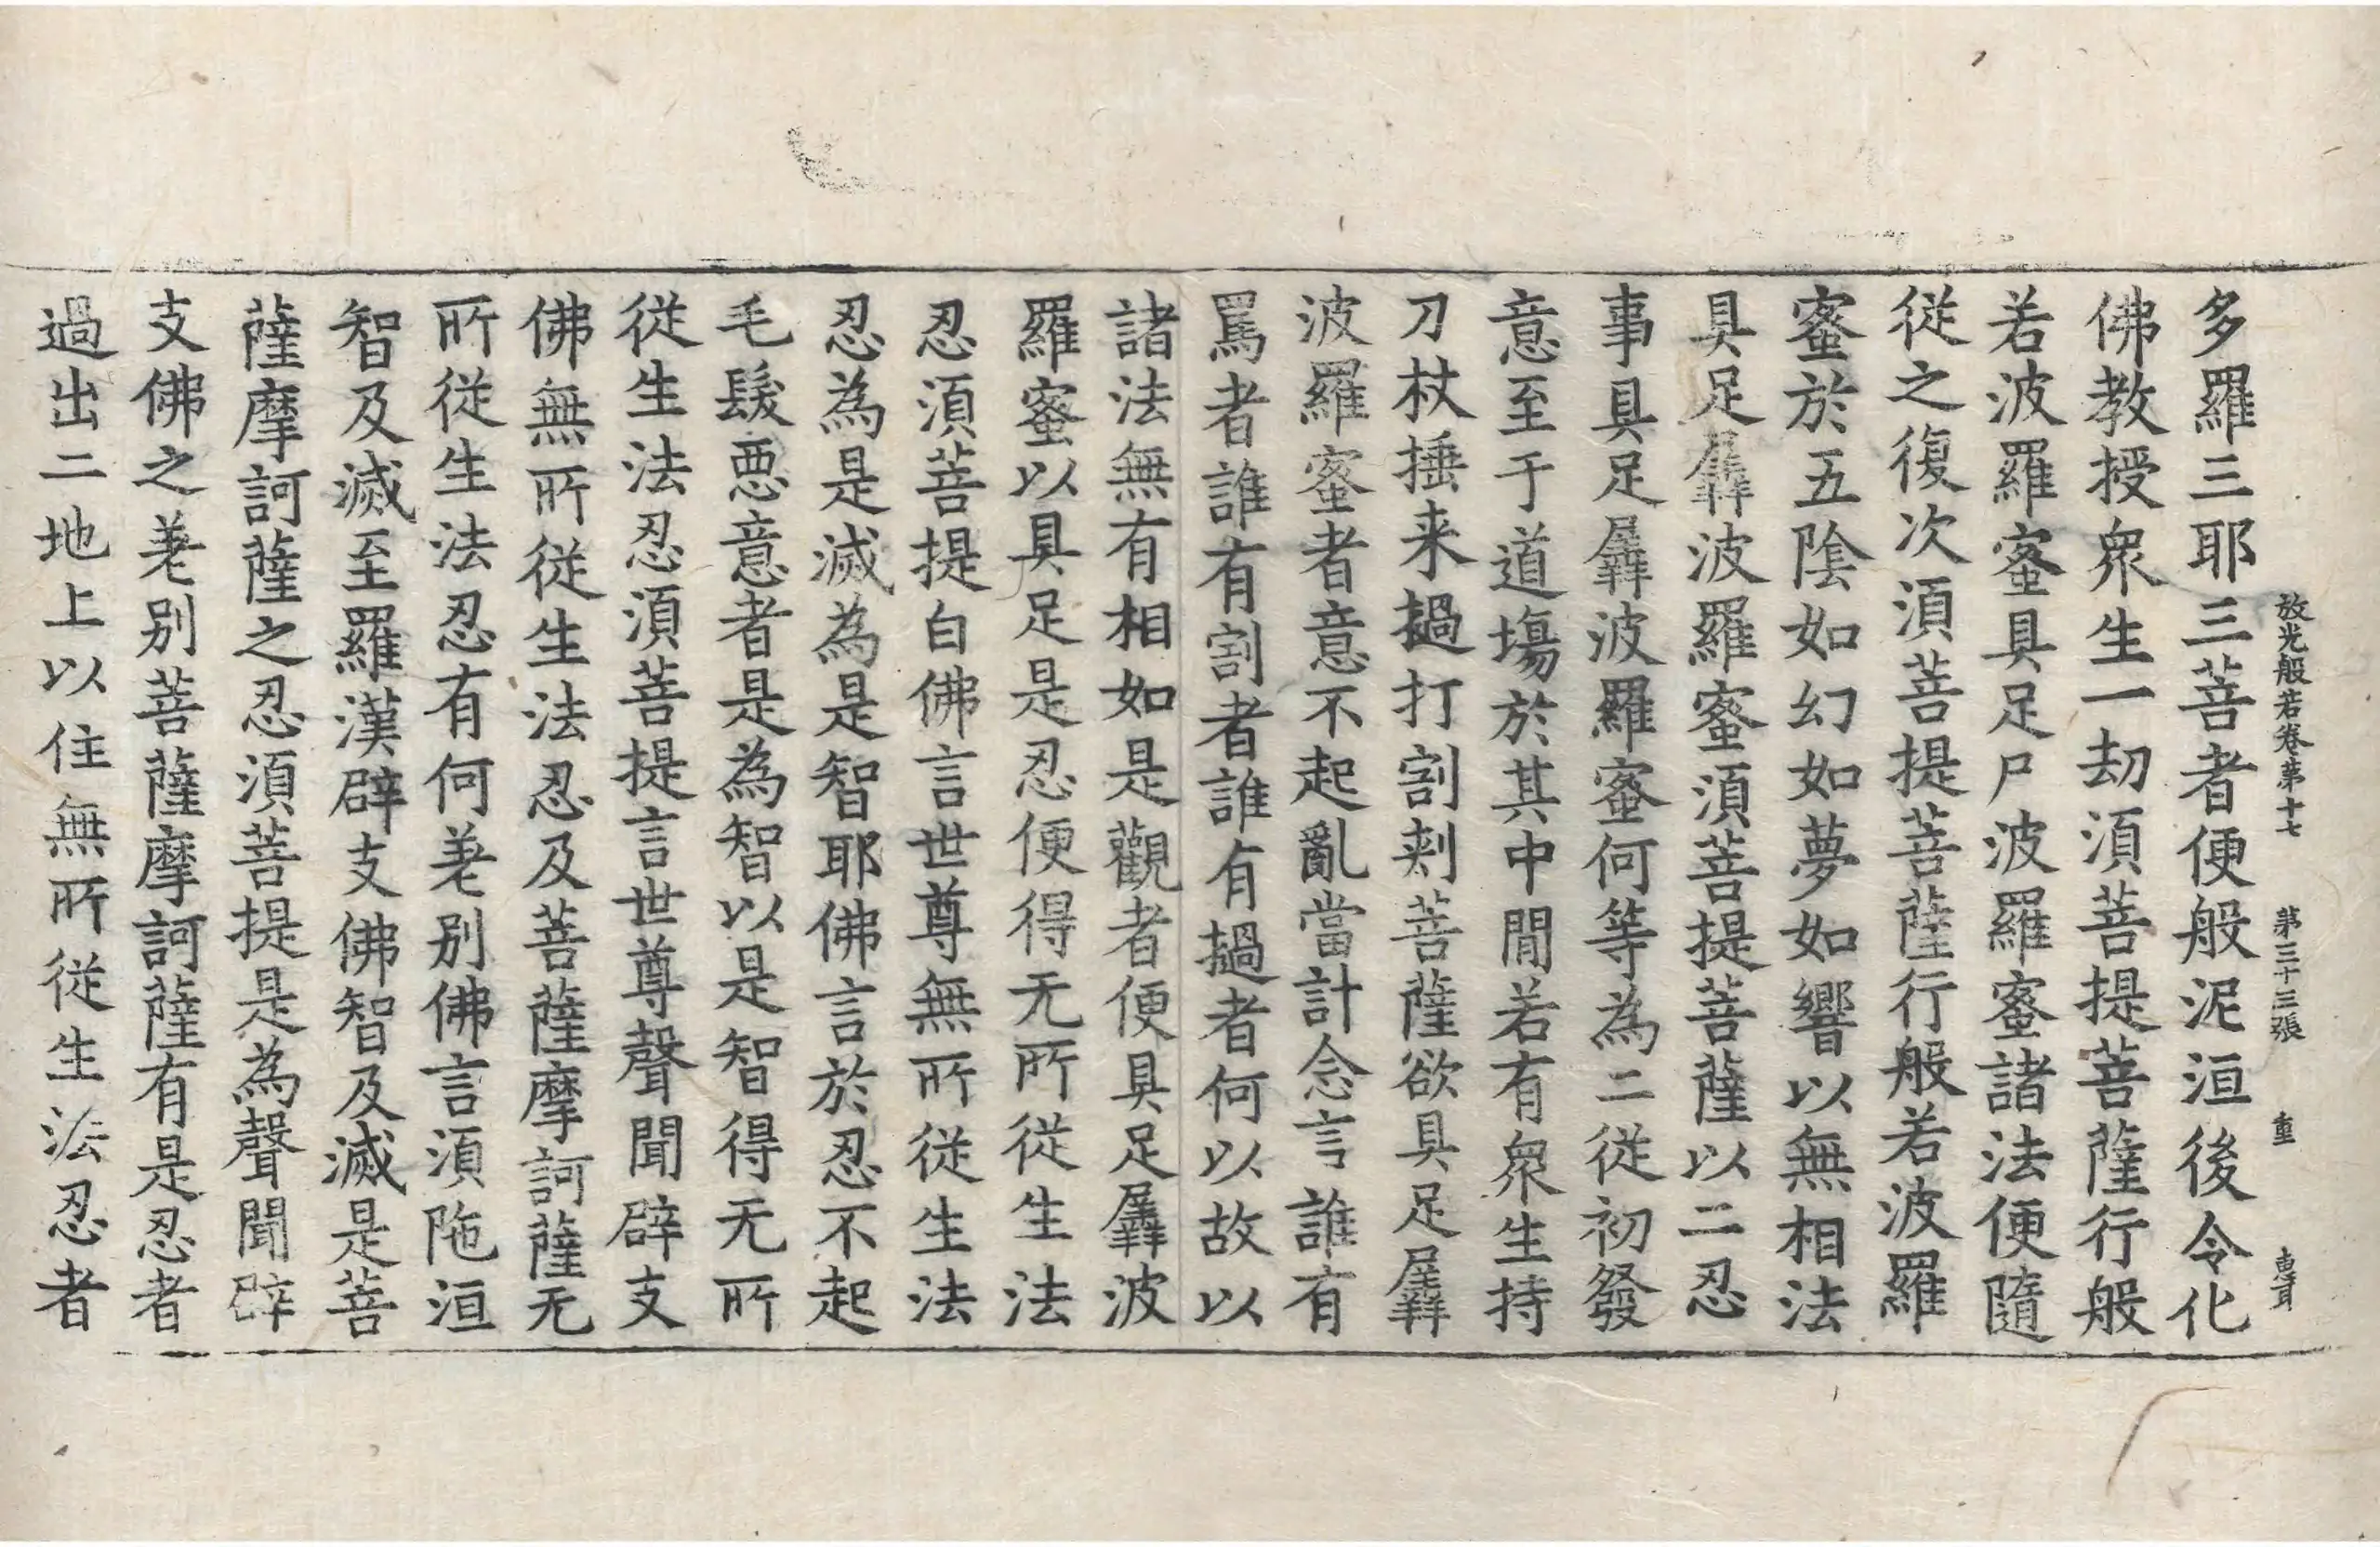 放光般若卷第十七 第三十三張 重
多羅三耶三菩者便般泥洹後令化
佛教授衆生一劫須菩提菩薩行般
若波羅蜜具足尸波羅蜜諸法便隨
從之復次須菩提菩薩行般若波羅
蜜於五陰如幻如夢如響以無相法
具足羼波羅蜜須菩提菩薩以二忍
事具足羼波羅蜜何等為二從初發
意至于道場於其中閒若有衆生持
刀杖捶来撾打割刾菩薩欲具足羼
波羅蜜者意不起亂當計念言誰有
罵者誰有割者誰有撾者何以故以
諸法無有相如是觀者便具足羼波
羅蜜以具足是忍便得无所從生法
忍須菩提白佛言世尊無所從生法
忍為是滅為是智耶佛言於忍不起
毛髮惡意者是為智以是智得无所
從生法忍須菩提言世尊聲聞辟支
佛無所從生法忍及菩薩摩訶薩无
所從生法忍有何差別佛言須陁洹
智及滅至羅漢辟支佛智及滅是菩
薩摩訶薩之忍須菩提是為聲聞辟
支佛之差別菩薩摩訶薩有是忍者
過出二地上以住無所從生法忍者